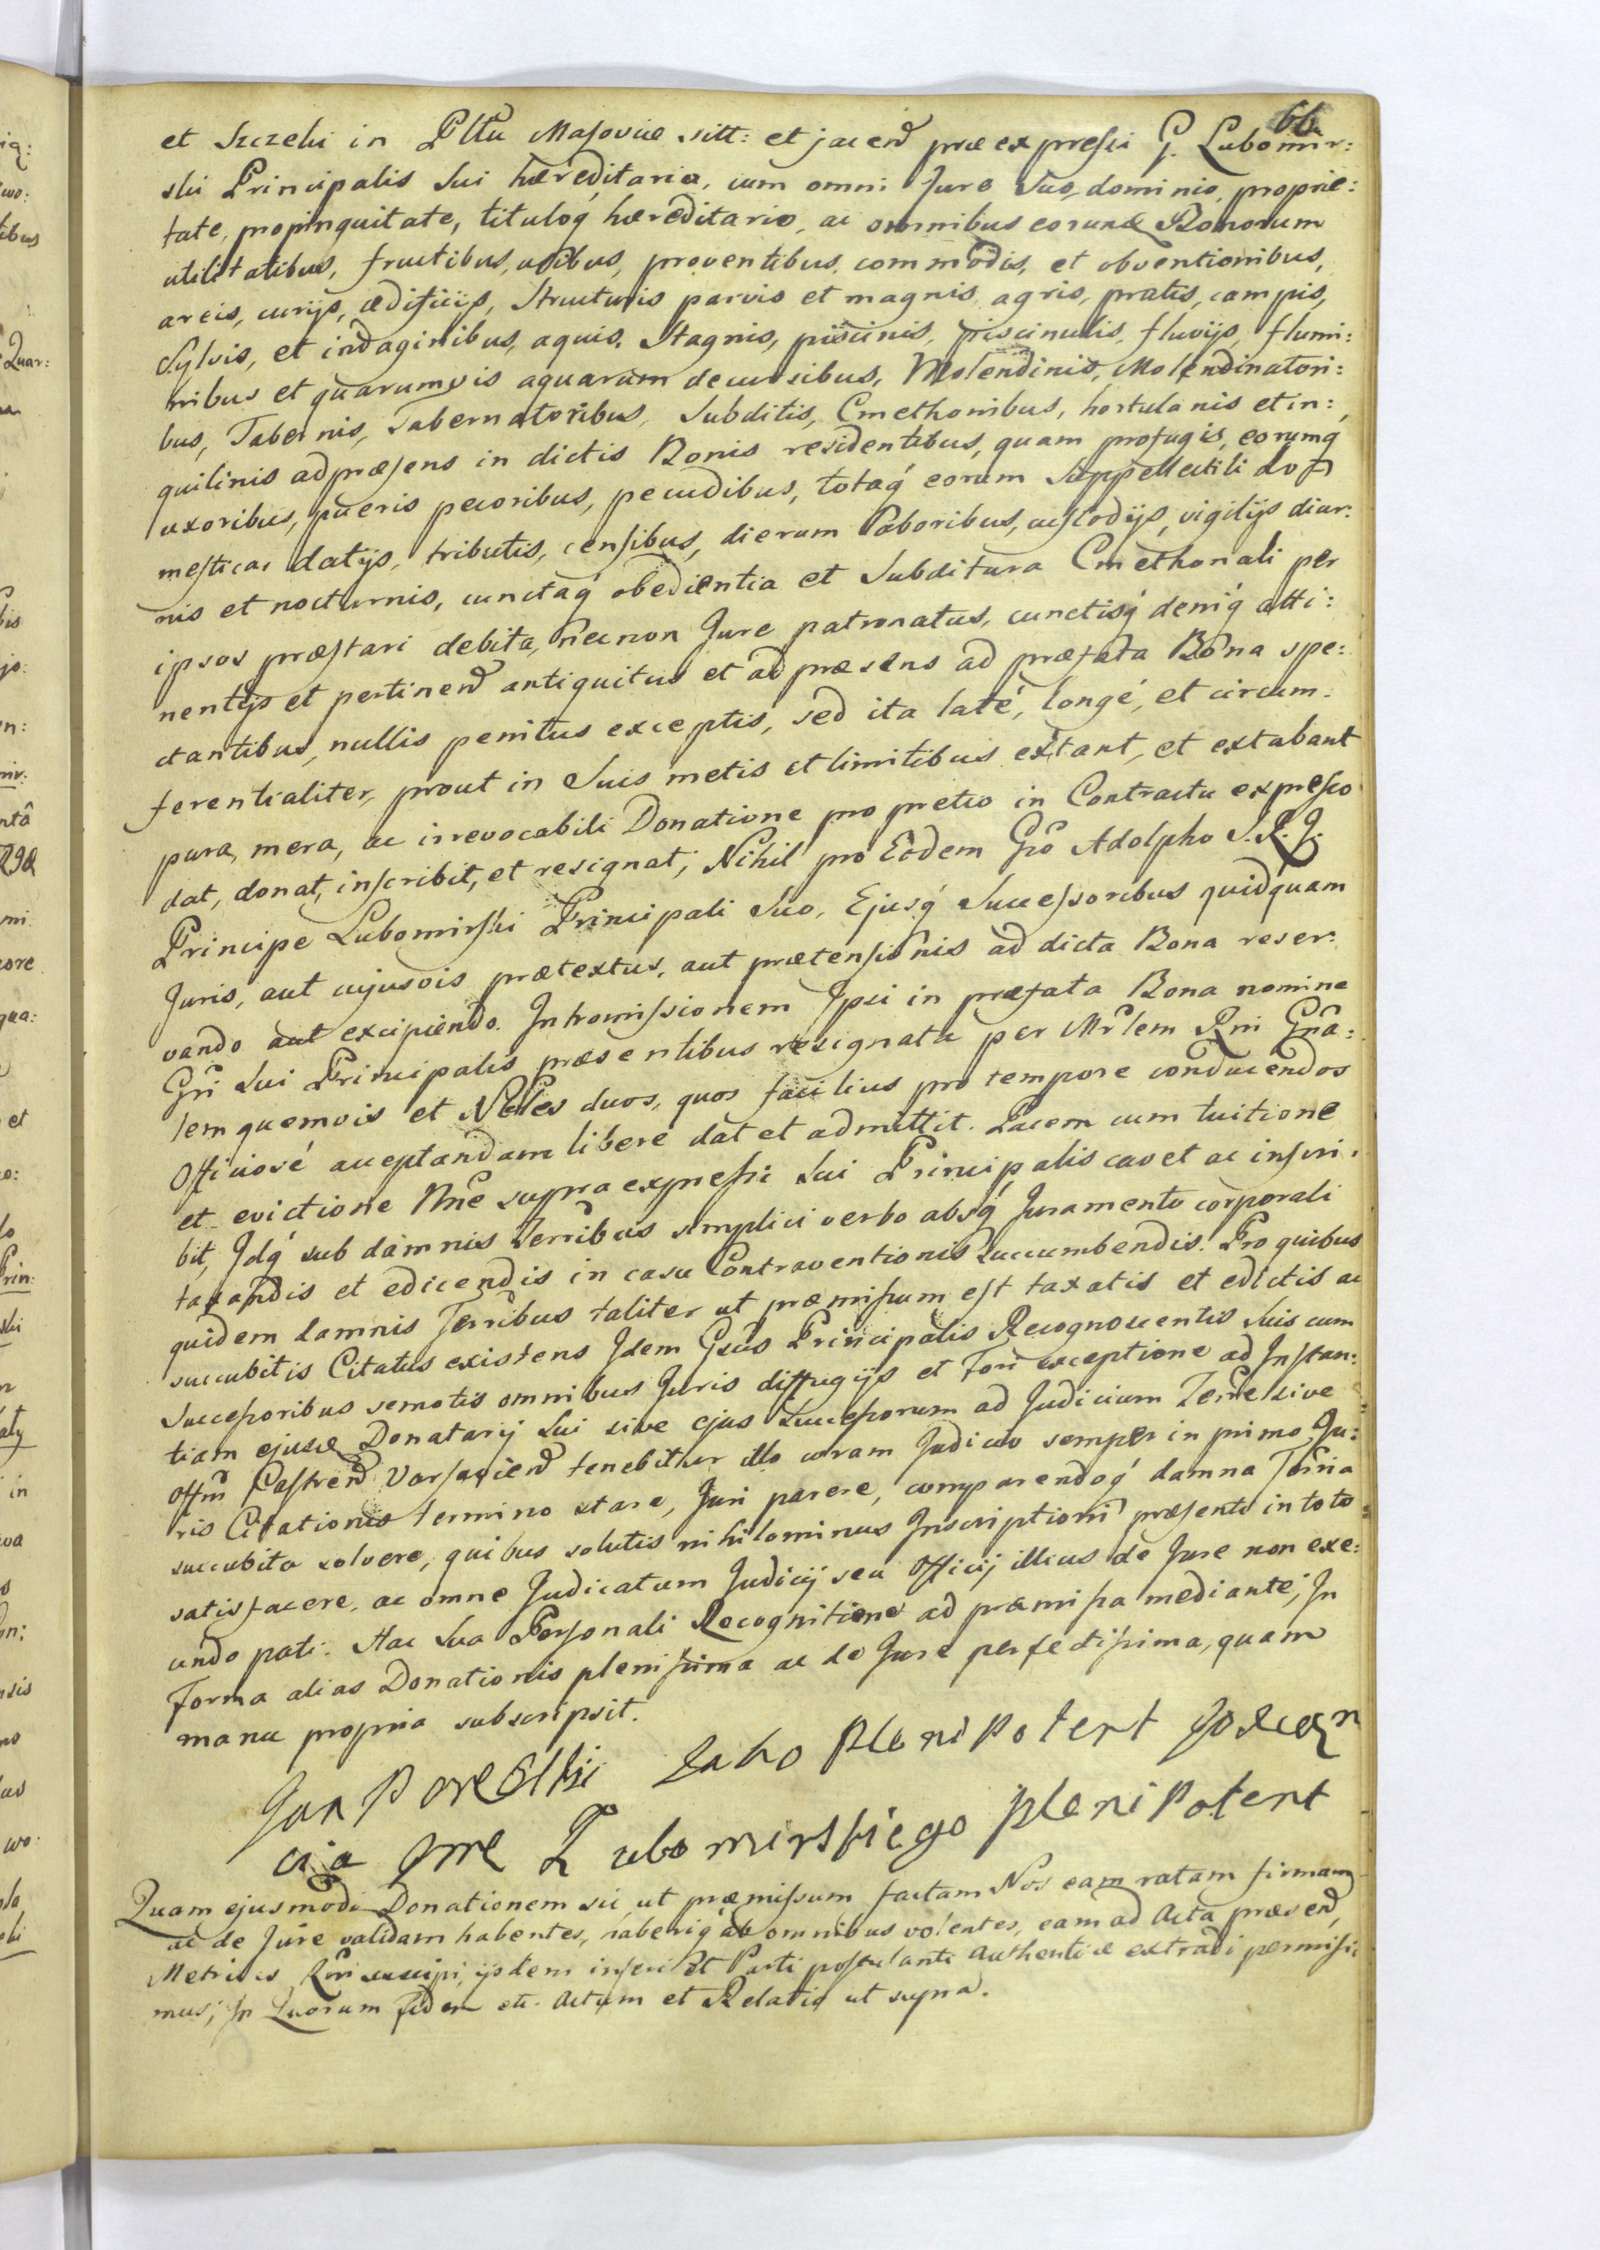 66
et Szczeki in Pltu Masoviæ sitt: et jacend præexpressi G. Lubomir:
ski Principalis sui hæreditaria, cum omni Jure suo, dominio, proprie:
tate, propinquitate, tituloq́ hæreditario, ac omnibus eorund Bonorum
utilitatibus, fructibus, usibus, proventibus, commodis, et obventionibus,
areis, curijs, ædificijs, structuris parvis et magnis agris, pratis, campis,
Sylvis, et indaginibus, aquis, Stagnis, piscinis, piscinulis, fluvijs, flumi:
nibus et quarumvis aquarum decursibus, Molendinis, Molendinatori:
bus, Tabernis, Tabernatoribus, Subditis, Cmethonibus, hortulanis et in:
quilinis ad præsens in dictis Bonis residentibus, quam profugis, eorumq́
uxoribus, pueris pecoribus, pecudibus, totaq́ eorum Suppellectili do
mestica, datijs, tributis, censibus, dierum laboribus, custodijs, vigilijs diur:
nis et nocturnis, cunctaq́ obedientia et Subditura Cmethonali per
ipsos præstari debita, necnon Jure patronatus, cunctisq́ deniq́ atti:
nentijs et pertinend antiquitus et ad præsens ad præfata Bona spe:
ctantibus, nullis penitus exceptis, sed ita laté, longé, et circum:
ferentialiter, prout in Suis metis et limitibus extant, et extabant
pura, mera, ac irrevocabili Donatione pro pretio in Contractu expresso
dat, donat, inscribit, et resignat; Nihil pro Eodem Gso Adolpho S. R. J.
Principe Lubomirski Principali Suo, Ejusq́ Successoribus quidquam
Juris, aut cujusvis prætextus, aut prætensionis ad dicta Bona reser:
vando aut excipiendo. Intromissionem Ipsi in præfata Bona nomine
Gsi Sui Principalis præsentibus resignata per Mrlem Rni Gna:
lem quemvis et Nbles duos, quos facilius pro tempore conducendos
Officiosé acceptandam liberé dat et admittit. Pacem cum tuitione
et evictione Nne supra expressi Sui Principalis cavet ac inscri:
bit, Idq́ sub damnis Terribus simplici verbo absq́ Juramento corporali
taxandis et edicendis in casu Contraventionis succumbendis. Pro quibus
quidem damnis Terribus taliter ut præmissum est taxatis et edictis ac
succubitis Citatus existens Idem Gsus Principalis Recognoscentis Suis cum
Successoribus semotis omnibus Juris diffugijs et Fori exceptione ad Instan:
tiam ejusd Donatarij Sui sive ejus Successorum ad Judicium Terrre sive
Offm Castrend Varsaviend tenebitur illo coram Judicio semper in primo Ju:
ris Citationis termino stare, Juri parere, comparendoq́ damna Terria
succubita solvere, quibus solutis nihilominus Inscriptioni præsenti in toto
satisfacere, ac omne Judicatum Judicij seu Officij illius de Jure non exe:
undo pati. Hac Sua Personali Recognitione ad præmissa mediante, In
Forma alias Donationis plenissima ac de Jure perfectissima, quam
manu propria subscripsit.
Jako Plenipotent
Lubomirskiego plenipotent
Quam ejusmodi Donationem sic ut præmissum factam Nos eam ratam firmam
ac de Jure validam habentes, haberiq́ ab omnibus volentes, eam ad Acta præsend
Metrices Rni suscipi, ijsdem inseri et Parti postulanti Authentice extradi permisi
mus; In Quorum fidem etc. Actum et Relatio ut supra.